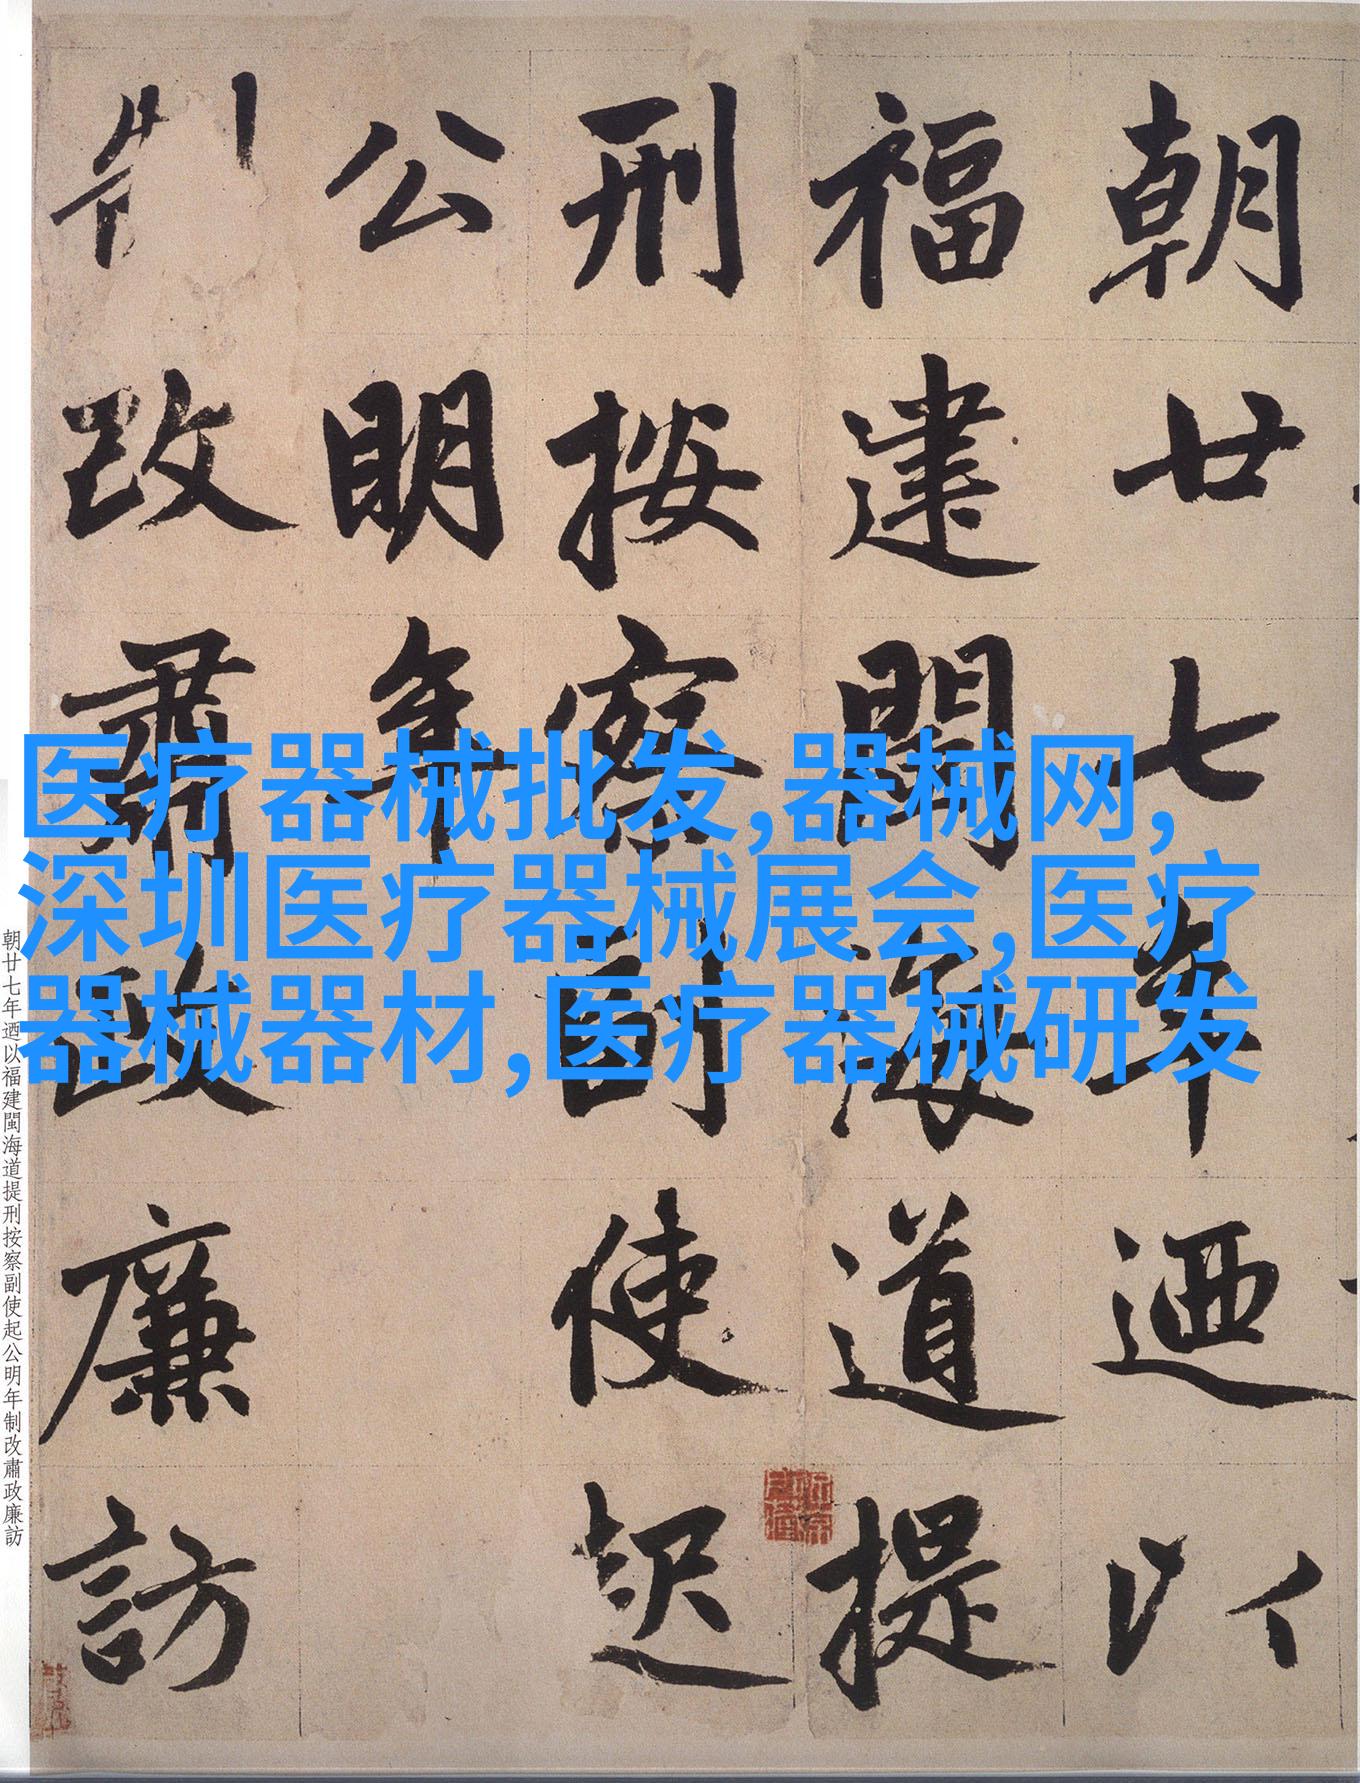 朝廿七年迺以
福建閩海道提
刑按察副使起
公明年
制改肅政廉訪
医疗器械批发,器械网,
深圳医疗器械展会,医疗
器械器材,医疗器械研发
朝廿七年迺以福建閩海道提刑按察副使起公明年制改肅政廉訪